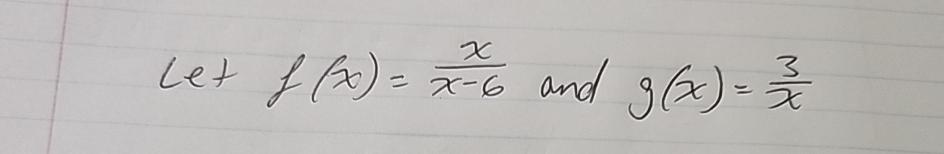 Let f(x) = x/(x-6) and g(x) = 3/x